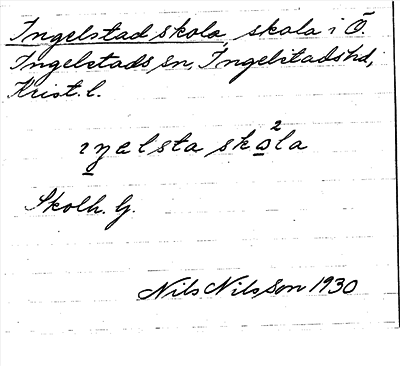 Ingelstad skola, skola i Ö.
Ingelstads sn, Ingelstads hd,
Krist. l.
ıŋelsta sko̲²la
Skolh. G.
Nils Nilsson 1930